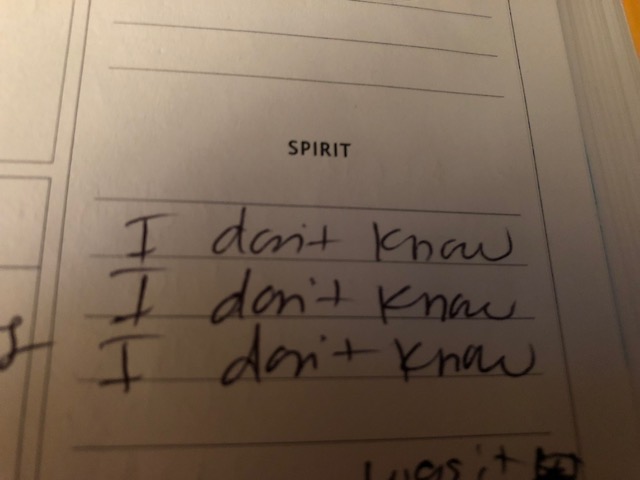 SPIRIT
I don't know
I don't know
I don't know
was it